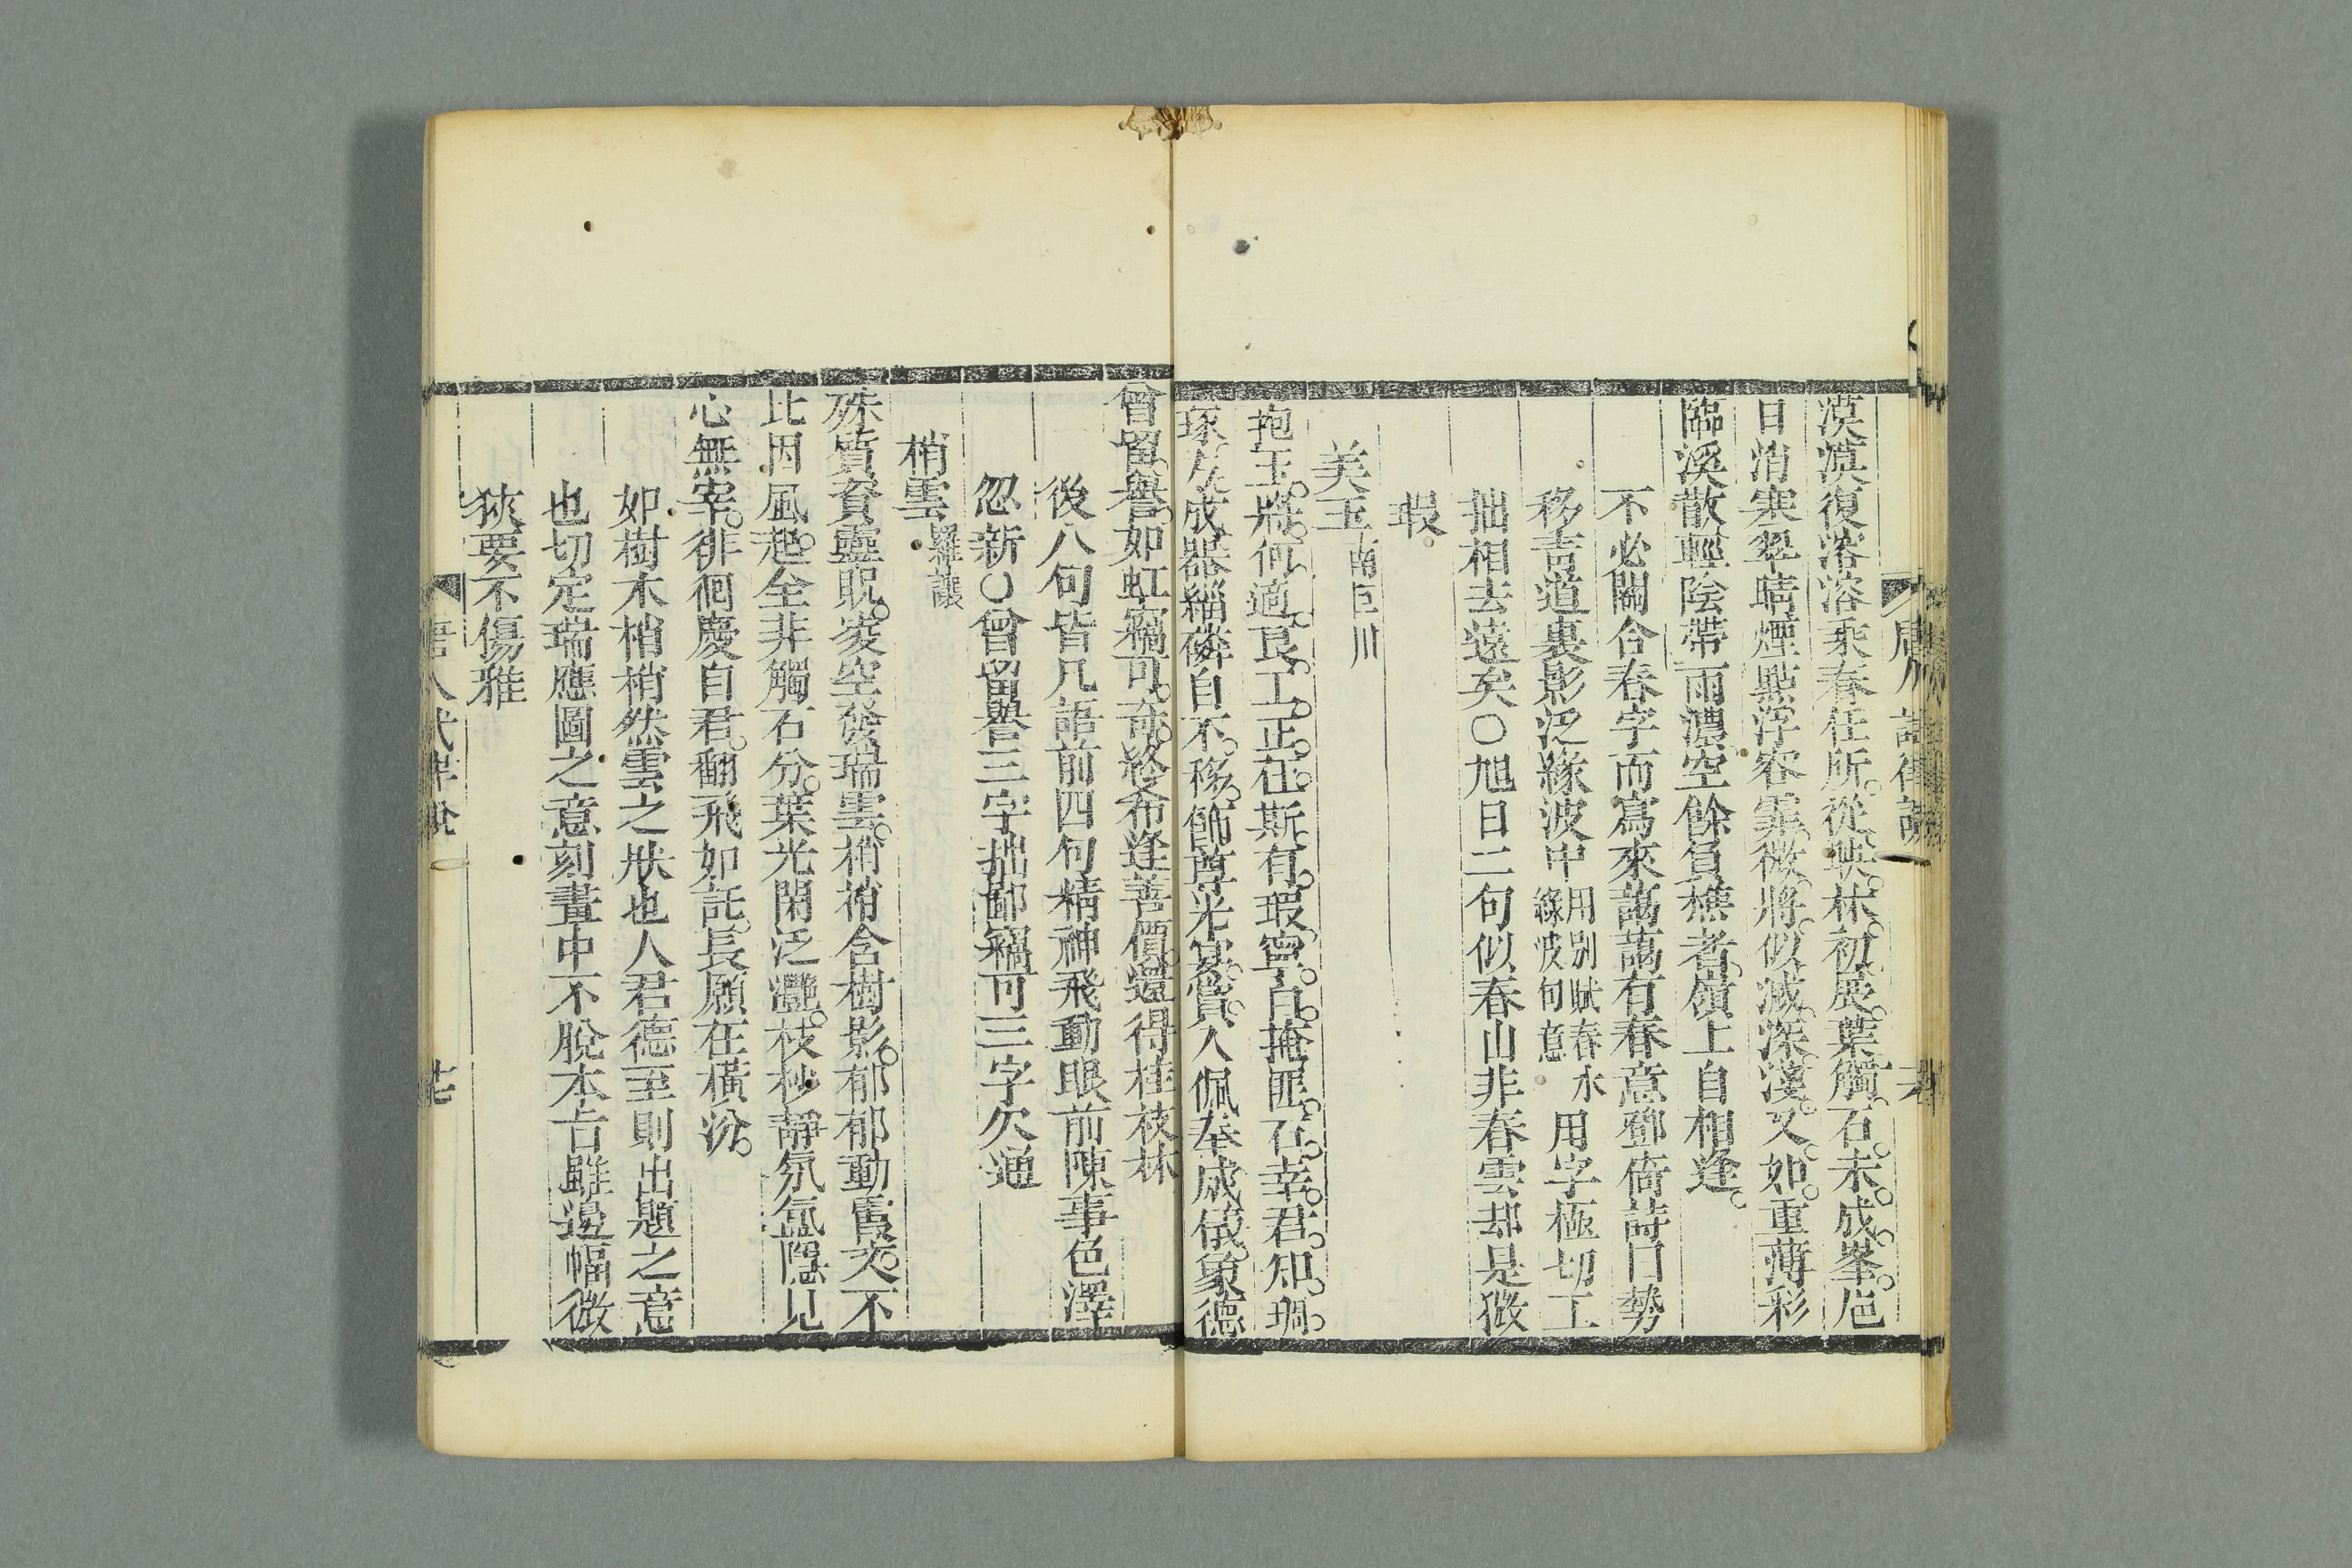 漠漠復溶溶乘春任所從映林初展葉觸石未成峯旭
日消寒翠晴煙點浮容霏微將似滅深淺又如重薄彩
臨溪散輕陰帶雨濃空餘負樵者嶺上自相逢
不必關合春字而寫來藹藹有春意鄧倚詩曰勢
移青道裏影泛緣波中用別賦春水綠波句意用字極切工
拙相去遠矣○旭日二句似春山非春雲却是微
瑕
美玉南巨川
抱玉將何適良工正在斯有瑕寧自掩匪石幸君知琱
琢成器緇磷自不移飾尊光宴賞入佩奉威儀象德
曾留譽如虹竊可奇終希逢善價還得桂枝林
後八句皆凡語前四句精神飛動眼前陳事色澤
忽新○曾留譽三字拙鄙竊可三字欠通
梢雲羅讓
殊質資靈貺凌空發瑞雲梢梢含樹影郁郁動霞文不
比因風起全非觸石分葉光閑泛灩枝杪靜氛氳隱見
心無宰徘徊慶自君翻飛如可託長願在橫汾
如樹木梢梢然雲之狀也人君德至則出題之意
也切定瑞應圖之意刻畫中不脫本旨雖邊幅微
狹要不傷雅